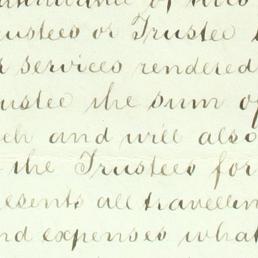 of
rustees or Trustee
services rendered
ustee the sum of
ch and will also
the Trustees for
esents all travellin
nd expenses what